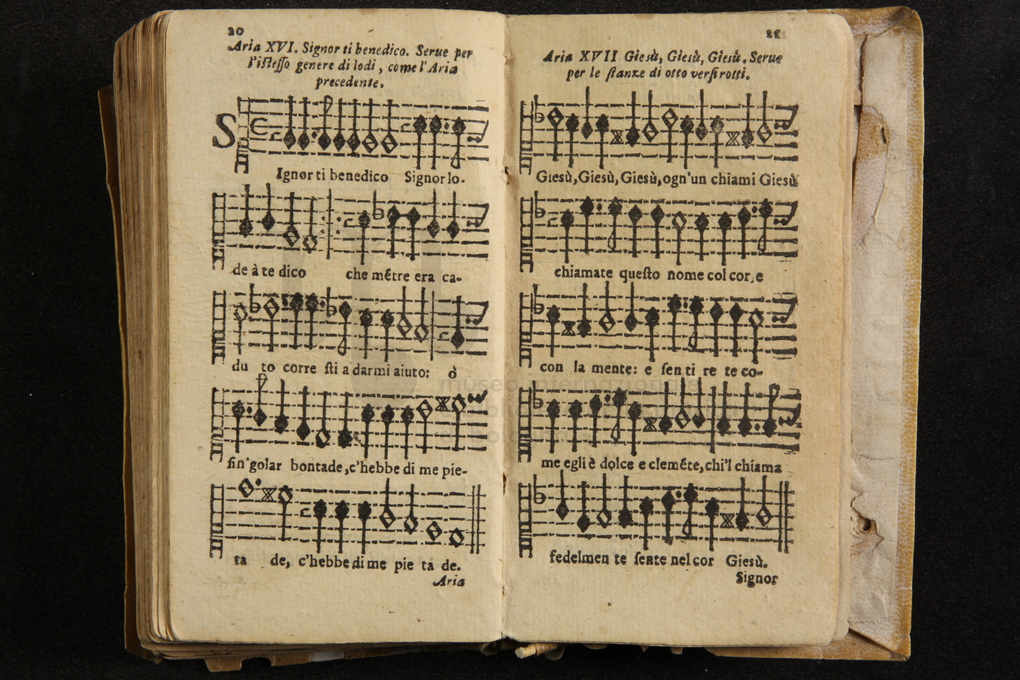 20
Aria XVI. Signor ti benedico. Serue per
l'istesso genere di lodi, come l'Aria
precedente.
SIgnor ti benedico Signor lo-
de à te dico che mẽtre era ca-
du to corre sti a darmi aiuto: ò
sin golar bontade, c'hebbe di me pie-
ta de, c'hebbe di me pie ta de.
Aria
Aria XVII Giesù, Giesù, Giesù. Serue
per le stanze di otto versi rotti.
Giesù, Giesù, Giesù, ogn'un chiami Giesù
chiamate questo nome col cor, e
con la mente: e sen ti re te co-
me egli è dolce e clemẽte, chi'l chiama
fedelmen te sente nel cor Giesù.
Signor
museo internazionale